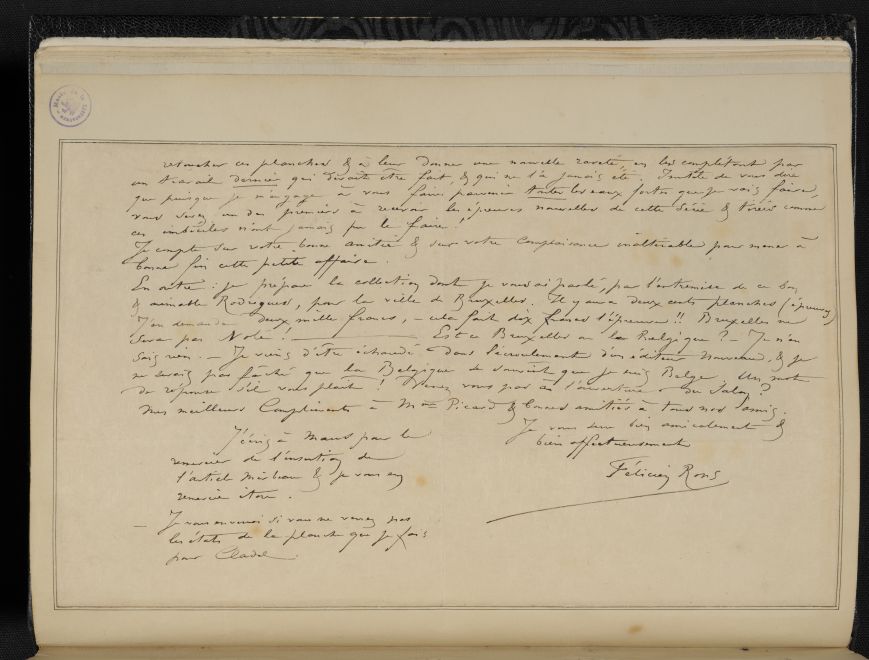 retoucher ces planches & à leur donner une nouvelle rareté, en les complétant par
un travail dernier qui devait être fait, & qui ne l'a jamais été. Inutile de vous dire
que puisque je m'engage à vous faire parvenir toutes les eaux fortes que je vais faire,
vous serez un des premiers à recevoir les épreuves nouvelles de cette série & tirées comme
ces imbéciles n'ont jamais pu le faire!
Je compte sur votre bonne amitié & sur votre complaisance inaltérable pour mener à
bonne fin cette petite affaire.
En outre: je prépare la collection dont je vous ai parlé, par l'entremise de ce bon
& aimable Rodrigues, pour la ville de Bruxelles. Il y aura deux cents planches (épreuves)
J'en demande deux mille francs, – cela fait dix francs l'épreuve!! Bruxelles ne
sera pas Volé! — Est ce Bruxelles ou la Belgique? – Je n'en
sais rien. – Je viens d'être échaudé dans l'écroulement d'un éditeur nouveau, & je
ne serais pas fâché que la Belgique se souvint que je suis Belge. Un mot
de réponse s'il vous plait! Venez vous par ici à l'ouverture du Salon?
Mes meilleurs Compliments à Mme Picard & bonnes amitiés à tous nos amis.
Je vous serre bien amicalement &
bien affectueusement
Félicien Rops
J'écris à Maus pour le
remercier de l'insertion de
l'article Mirbeau & je vous en
remercie itou.
– Je vous enverrai si vous ne venez pas
les états de la planche que je fais
pour Cladel.